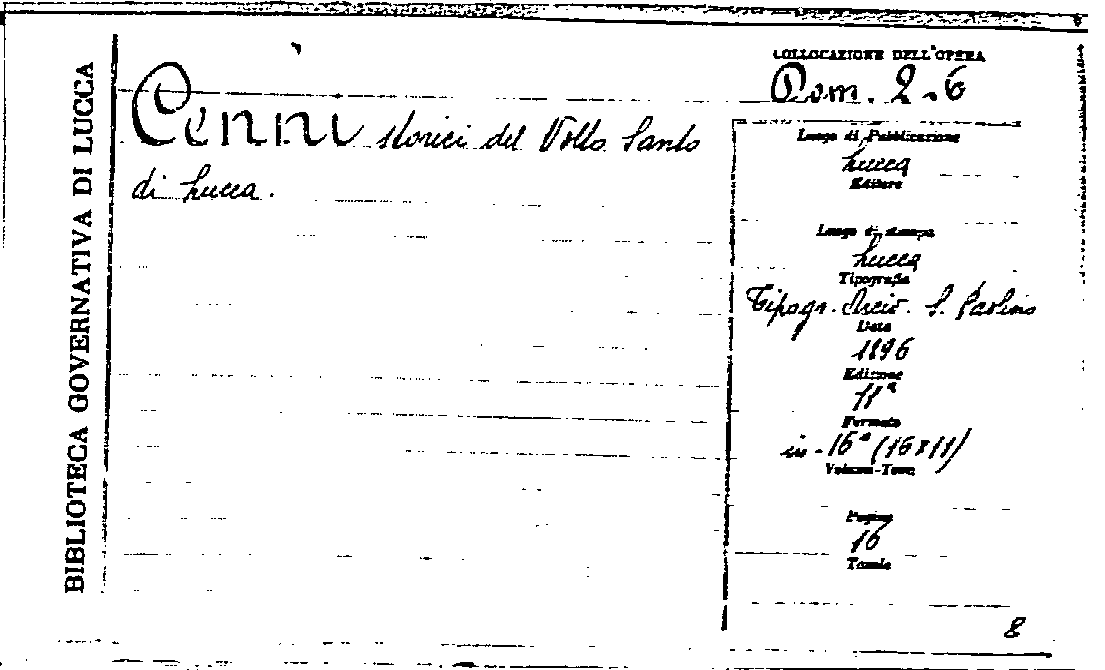 BIBLIOTECA GOVERNATIVA DI LUCCA
Cenni storici del Volto Santo
di Lucca.
COLLOCAZIONE DELL'OPERA
Dom. 2.6
Luogo di Pubblicazione
Lucca
Editore
Luogo di stampa
Lucca
Tipografia
Tipogr. Arciv. S. Paolino
Data
1896
Edizione
11ª
Formato
in-16° (16x11)
Volumi-Tomi
Pagine
16
Tavole
8